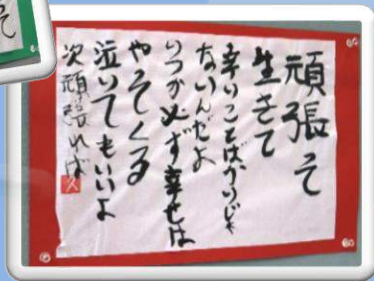 そ
頑張って
生きて
辛いことばかりじゃ
ないんだよ
いつか必ず幸せは
やってくる
泣いてもいいよ
次頑張れば